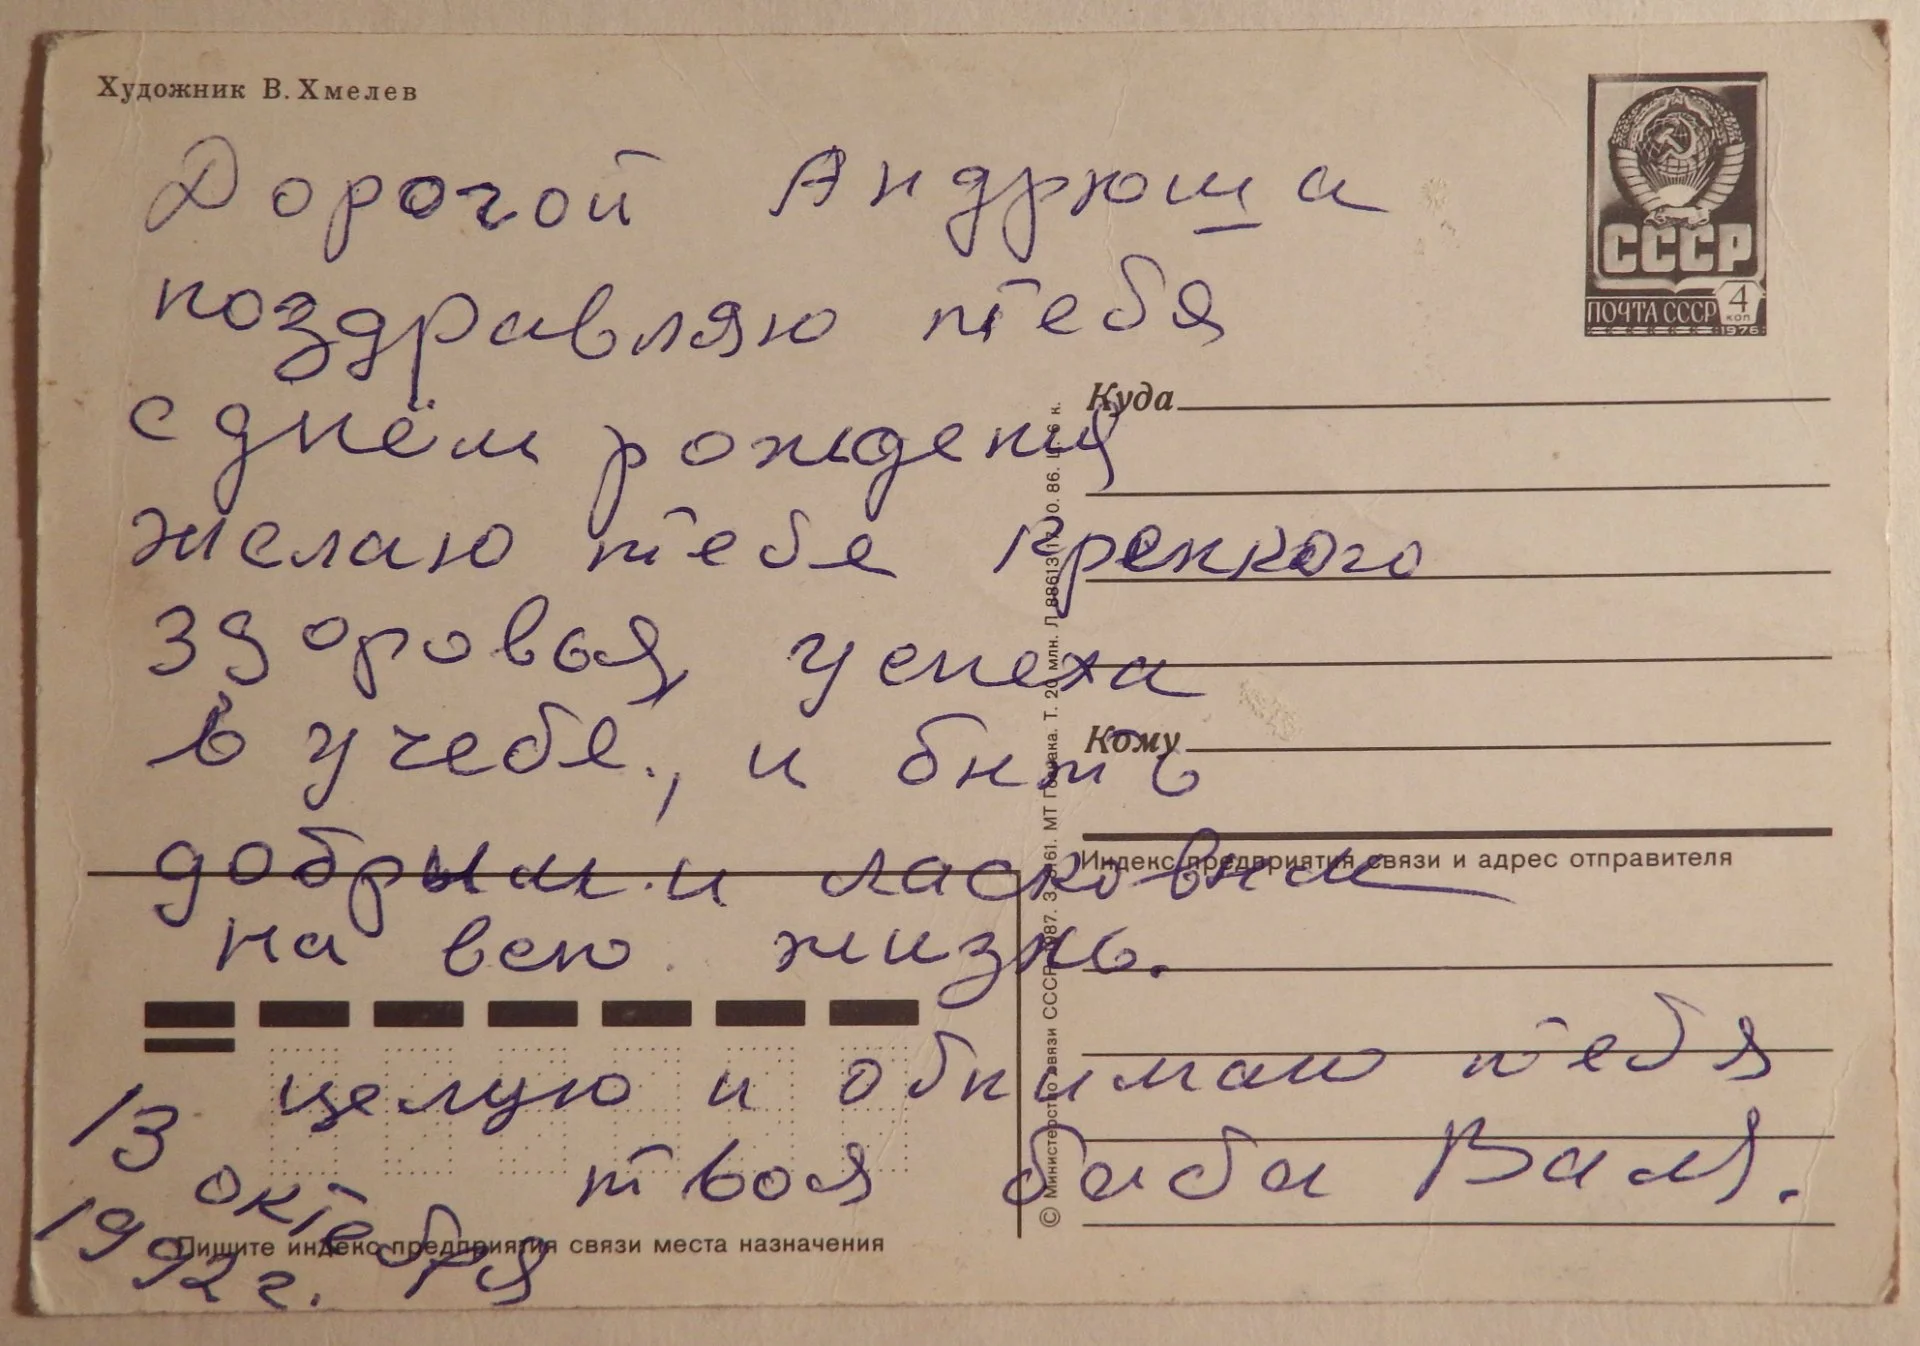 Художник В. Хмелев
СССР
ПОЧТА СССР 4 КОП
1976
Дорогой Андрюша
поздравляю тебя
с днём рождения
желаю тебе крепкого
здоровья, успеха
в учебе, и быть
добрым и ласковым
на всю жизнь.
целую и обнимаю тебя
твоя баба Валя.
13
октебря
1992 г.
Куда
Кому
Индекс предприятия связи и адрес отправителя
Пишите индекс предприятия связи места назначения
© Министерство связи СССР, МТ Гознака. Т. 20 млн. Л 88613 86.